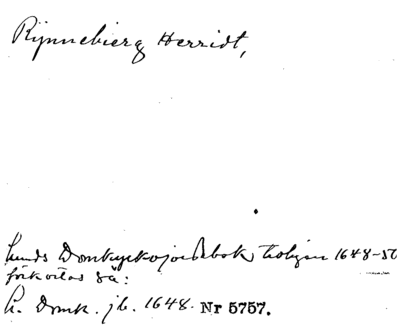 Rijnnebierg Herridt,
Lunds Domkyrkojordebok, troligen 1648-50
förkortas så:
L. Domk. jb. 1648. Nr 5757.